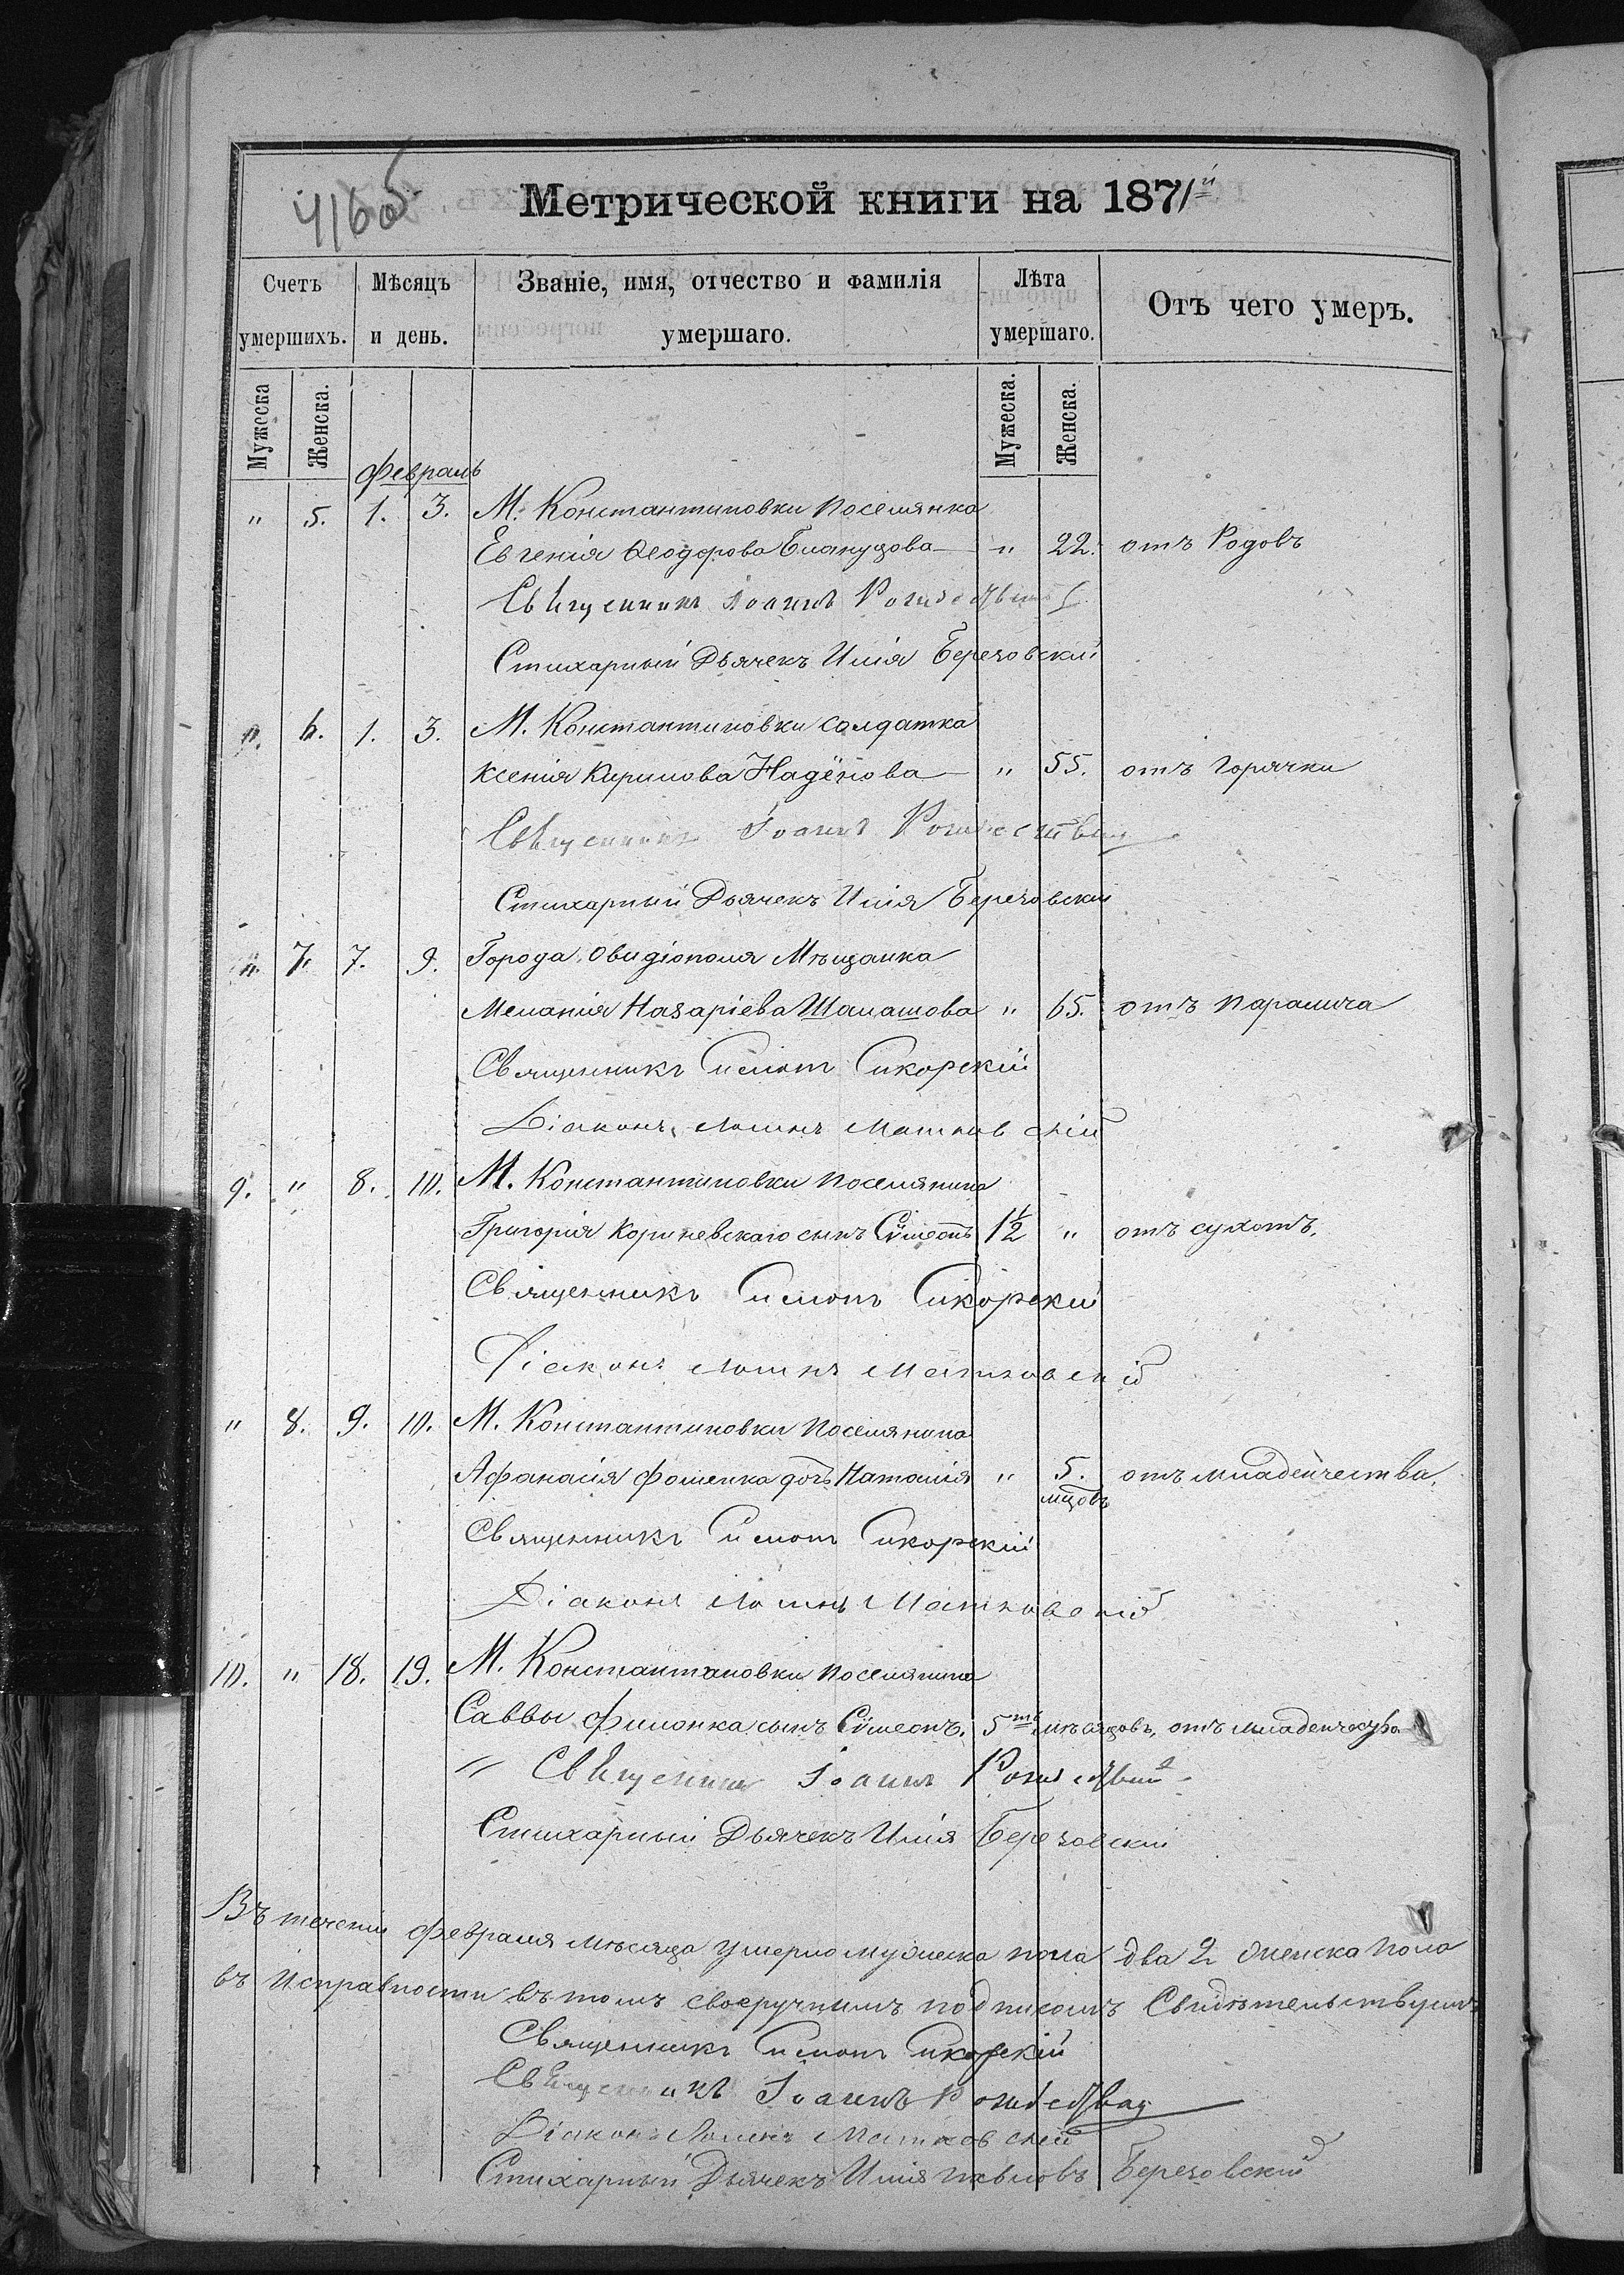 416об
Метрической книги на 1871й
Счетъ умершихъ.
Мѣсяцъ и день.
Званіе, имя, отчество и фамилія умершаго.
Лѣта умершаго.
Отъ чего умеръ.
Мужеска
Женска.
Мужеска.
Женска.
Февраль
" 5. 1. 3. М. Константиновки поселянка
Евгенія Ѳеодорова " 22. отъ Родовъ
Священникъ Іоаннъ
Стихарный Дьячекъ Илія Березовскій
". 6. 1. 3. М. Константиновки солдатка
Ксенія Кирилова Надёнова " 55. отъ Горячки
Священникъ Іоаннъ
Стихарный Дьячекъ Илія Березовскій
". 7. 7. 9. Города Овидіополя Мѣщанка
Меланія Назаріева Шалашова " 65. отъ паралича
Священникъ Симонъ Сикорскій
Діаконъ Матковскій
9. " 8. 10. М. Константиновки поселянина
Григорія Кориневскаго сынъ Сѵмеонъ 1½ " отъ сухотъ.
Священникъ Симонъ Сикорскій
Діаконъ Матковскій
" 8. 9. 10. М. Константиновки поселянина
Афанасія Фоменка дочь Наталія " 5. отъ младенчества.
мцовъ
Священникъ Симонъ Сикорскій
Діаконъ Матковскій
10. " 18. 19. М. Константиновки поселянина
Саввы Филонка сынъ Сѵмеонъ. 5ть мѣсяцовъ. отъ младенчества
" Священникъ Іоаннъ
Стихарный Дьячекъ Илія Березовскій
Въ теченіи Февраля мѣсяца умерло мужеска пола два 2 женска пола
въ исправности въ томъ своеручнымъ подписомъ Свидѣтельствуемъ
Священникъ Симонъ Сикорскій
Священникъ Іоаннъ
Діаконъ Матковскій
Стихарный Дьячекъ Илія Березовскій